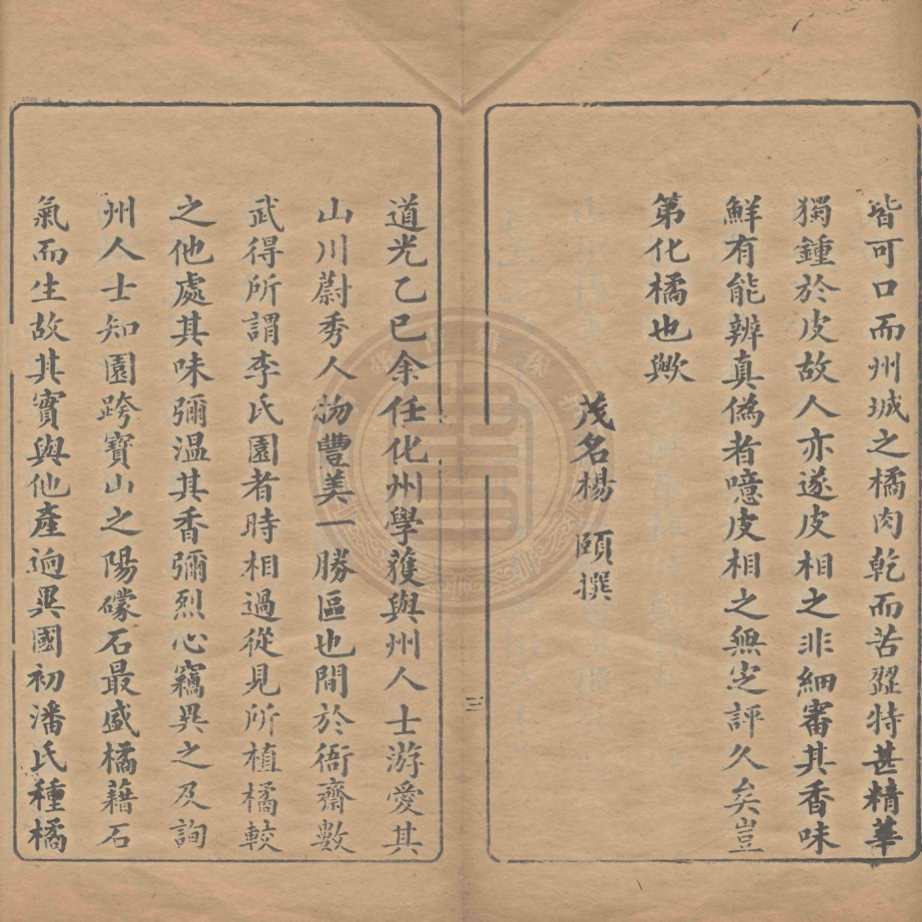 皆可口而州城之橘肉乾而苦澀特甚精華
獨鍾於皮故人亦遂皮相之非細審其香味
鮮有能辨真偽者噫皮相之無定評久矣豈
第化橘也歟
茂名楊頤撰
三
道光乙巳余任化州學獲與州人士游愛其
山川蔚秀人物豐美一勝區也間於衙齋數
武得所謂李氏園者時相過從見所植橘較
之他處其味彌溫其香彌烈心竊異之及詢
州人士知園跨寶山之陽礞石最盛橘藉石
氣而生故其實與他產逈異國初潘氏種橘